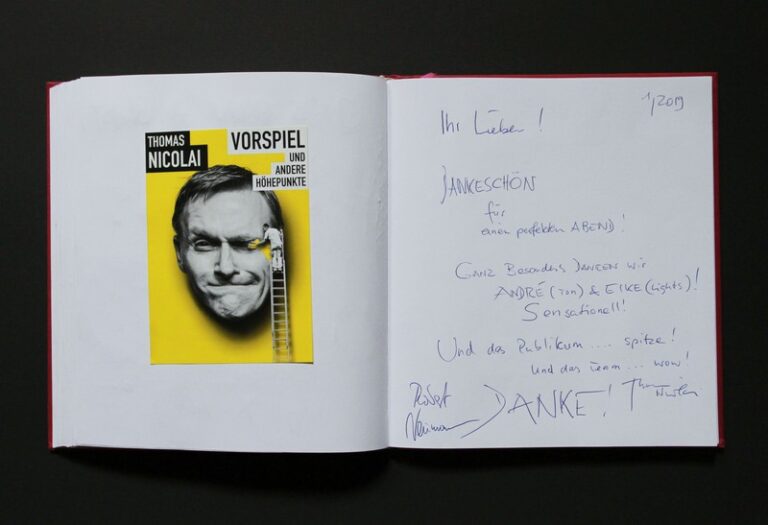 THOMAS
NICOLAI
VORSPIEL
UND
ANDERE
HÖHEPUNKTE
1/2019
Ihr Lieben!
DANKESCHÖN
für
einen perfekten ABEND!
GANZ Besonders DANKEN wir
ANDRÉ (Ton) & EIKE (Lights)!
Sensationell!
Und das Publikum .... spitze!
Und das Team ... wow!
DANKE!
Robert